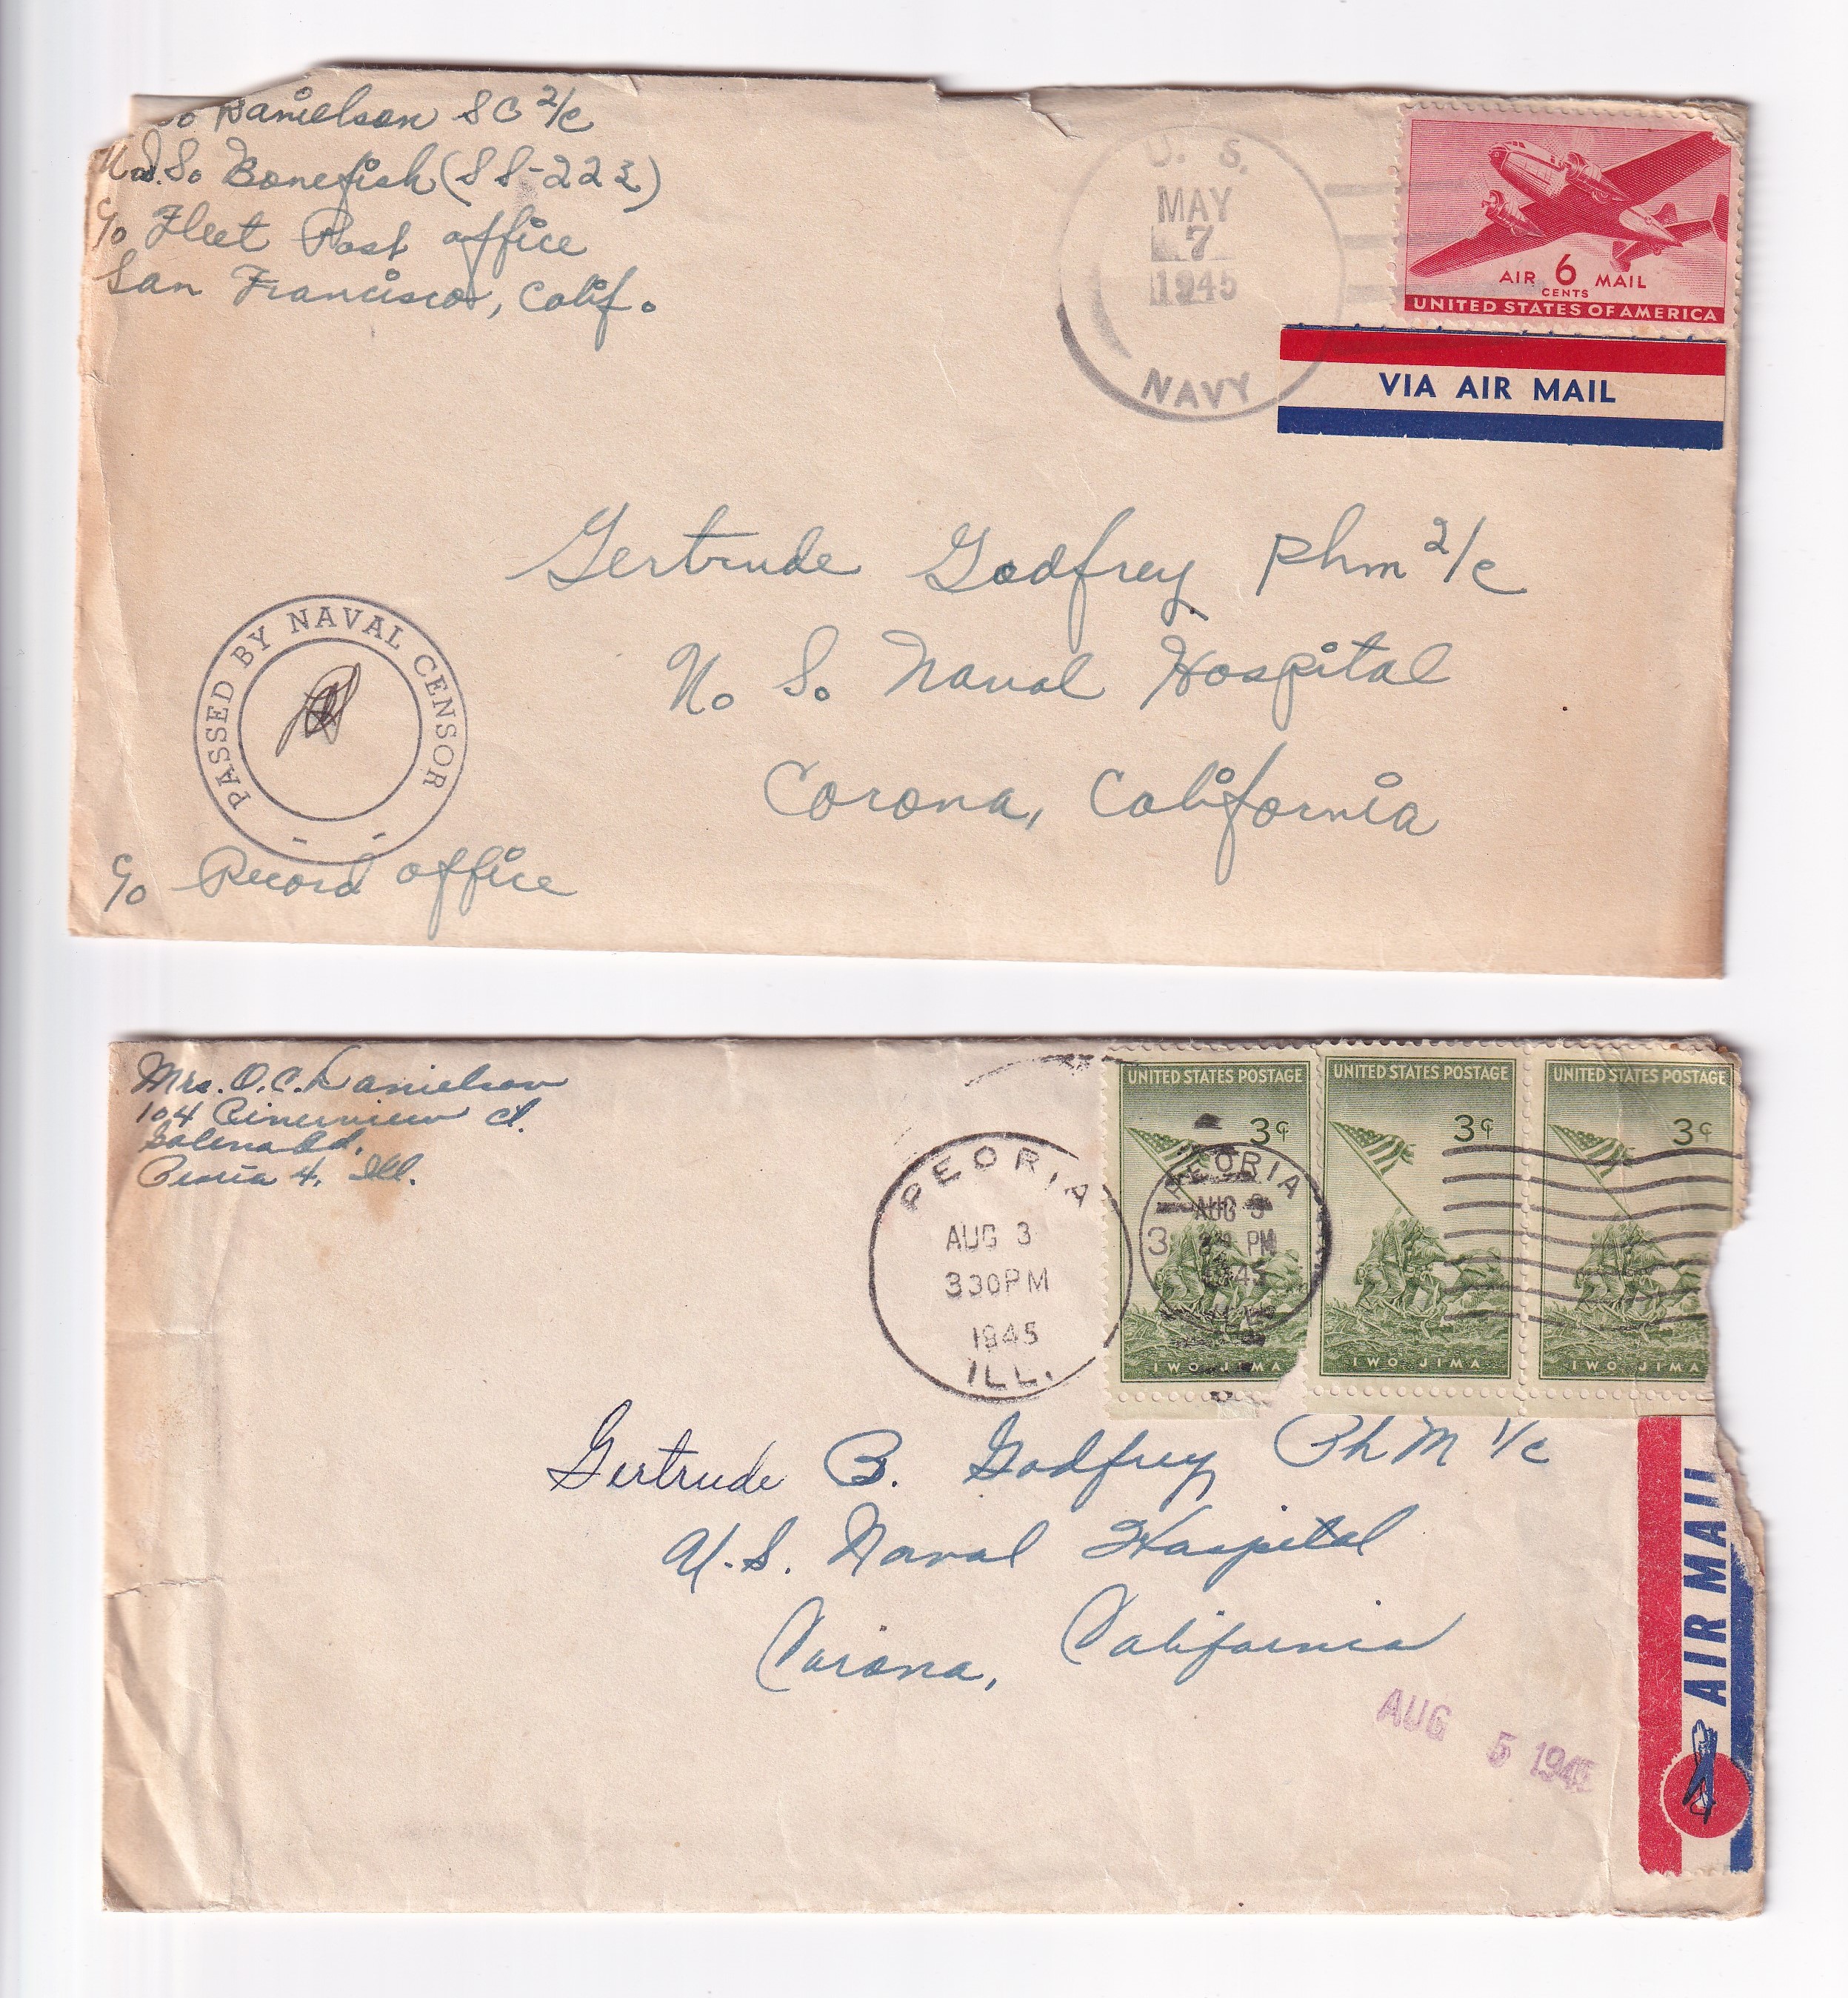 Danielson SC 2/c
U.S.S. Bonefish (SS-223)
c/o Fleet Post office
San Francisco, Calif.
U. S.
MAY
7
1945
NAVY
AIR 6 MAIL
CENTS
UNITED STATES OF AMERICA
VIA AIR MAIL
Gertrude Godfrey Phm 2/c
U. S. Naval Hospital
Corona, California
PASSED BY NAVAL CENSOR
c/o Record office
Mrs. O. C. Danielson
104 Ct.
Galena Rd.
Peoria 4, Ill.
PEORIA
AUG 3
330PM
1945
ILL.
PEORIA
AUG 3
PM
1945
UNITED STATES POSTAGE
3¢
IWO JIMA
UNITED STATES POSTAGE
3¢
IWO JIMA
UNITED STATES POSTAGE
3¢
IWO JIMA
Gertrude B. Godfrey PhM 1/c
U.S. Naval Hospital
Corona, California
AIR MAIL
AUG 5 1945